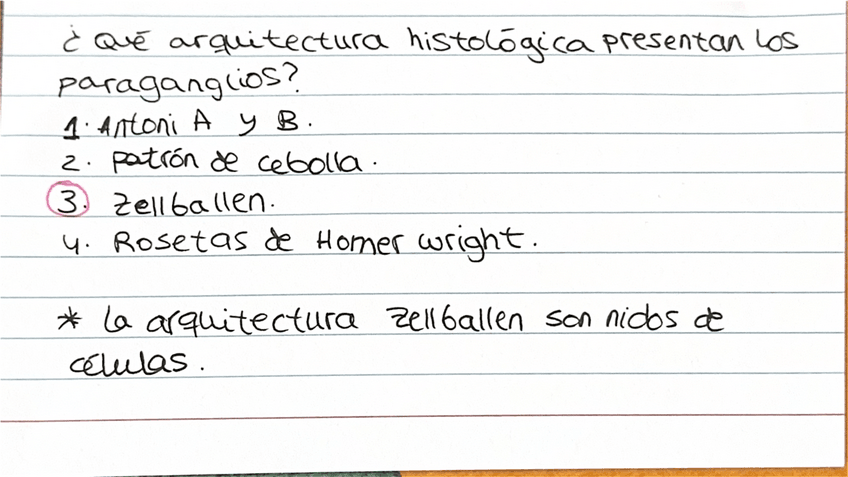 ¿ Qué arquitectura histológica presentan los
paraganglios?
1. Antoni A y B.
2. patrón de cebolla.
3. Zellballen.
4. Rosetas de Homer wright.
* la arquitectura Zellballen son nidos de
células.